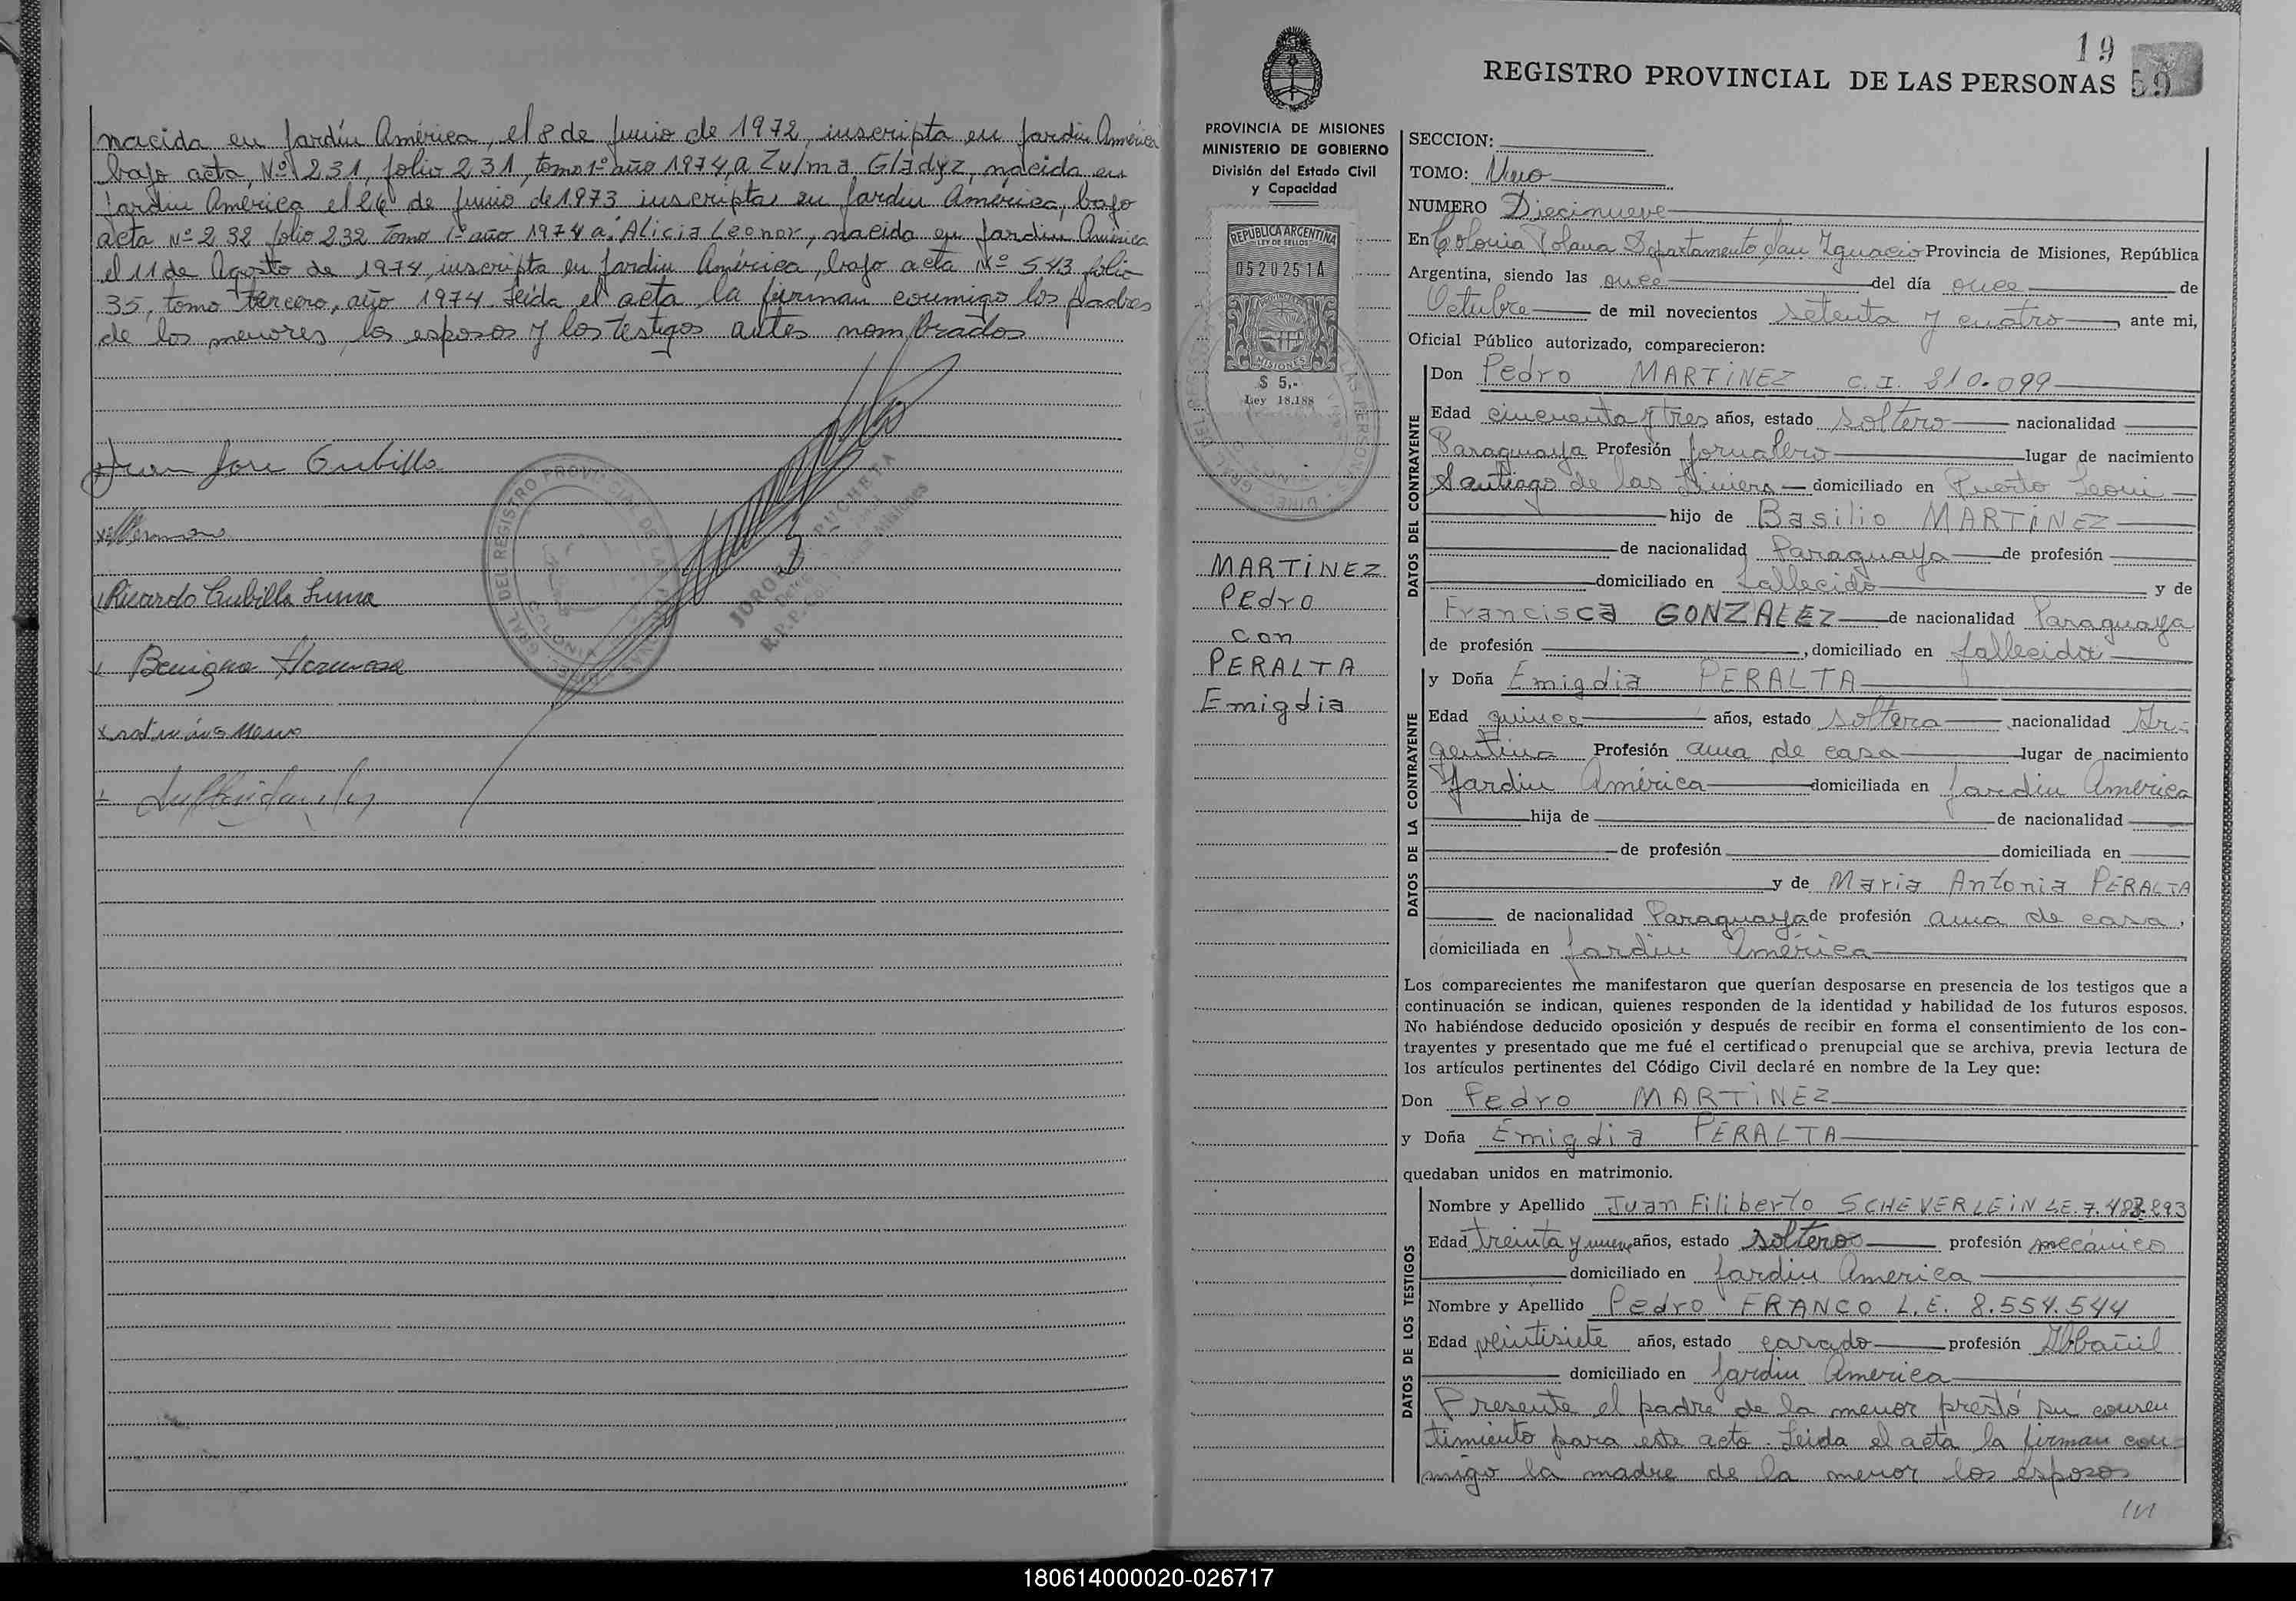 nacida en Jardín América, el 8 de Junio de 1972, inscripta en Jardín América
bajo acta, Nº 231, folio 231, tomo 1º año 1974, a Zulma Gladyz, nacida en
Jardín América el 26 de Junio de 1973 inscripta en Jardín América, bajo
acta Nº 232 folio 232 Tomo 1º año 1974 a: Alicia Leonor, nacida en Jardín América
el 11 de Agosto de 1974, inscripta en Jardín América, bajo acta Nº 543 folio
35, tomo tercero, año 1974. Leída el acta la firman conmigo los padres
de los menores, los esposos y los testigos antes nombrados
Juan Jose Cubilla
Ricardo Cubilla Luna
Benigna
19
REGISTRO PROVINCIAL DE LAS PERSONAS 59
PROVINCIA DE MISIONES
MINISTERIO DE GOBIERNO
División del Estado Civil
y Capacidad
REPUBLICA ARGENTINA
LEY DE SELLOS
0520251A
MISIONES
$ 5,-
Ley 18.188
MARTINEZ
Pedro
con
PERALTA
Emigdia
SECCION:
TOMO: Uno
NUMERO Diecinueve
En Colonia Polana Departamento San Ignacio Provincia de Misiones, República
Argentina, siendo las once del día once de
Octubre de mil novecientos setenta y cuatro, ante mi,
Oficial Público autorizado, comparecieron:
DATOS DEL CONTRAYENTE
Don Pedro MARTINEZ C.I. 810.099
Edad cincuenta y tres años, estado soltero nacionalidad
Paraguaya Profesión jornalero lugar de nacimiento
Santiago de las domiciliado en Puerto Leoni
hijo de Basilio MARTINEZ
de nacionalidad Paraguaya de profesión
domiciliado en fallecido y de
Francisca GONZALEZ de nacionalidad Paraguaya
de profesión , domiciliado en fallecida
DATOS DE LA CONTRAYENTE
y Doña Emigdia PERALTA
Edad quince años, estado soltera nacionalidad Ar-
gentina Profesión ama de casa lugar de nacimiento
Jardín América domiciliada en Jardín América
hija de de nacionalidad
de profesión domiciliada en
y de Maria Antonia PERALTA
de nacionalidad Paraguaya de profesión ama de casa,
domiciliada en Jardín América
Los comparecientes me manifestaron que querían desposarse en presencia de los testigos que a
continuación se indican, quienes responden de la identidad y habilidad de los futuros esposos.
No habiéndose deducido oposición y después de recibir en forma el consentimiento de los con-
trayentes y presentado que me fué el certificado prenupcial que se archiva, previa lectura de
los artículos pertinentes del Código Civil declaré en nombre de la Ley que:
Don Pedro MARTINEZ
y Doña Emigdia PERALTA
quedaban unidos en matrimonio.
DATOS DE LOS TESTIGOS
Nombre y Apellido Juan Filiberto SCHEVERLEIN L.E. 7.483.893
Edad treinta y nueve años, estado soltero profesión mecánico
domiciliado en Jardín America
Nombre y Apellido Pedro FRANCO L.E. 8.554.544
Edad veintisiete años, estado casado profesión Albañil
domiciliado en Jardín America
Presente el padre de la menor prestó su consen
timiento para este acto. Leida el acta la firman con-
migo la madre de la menor los esposos
180614000020-026717